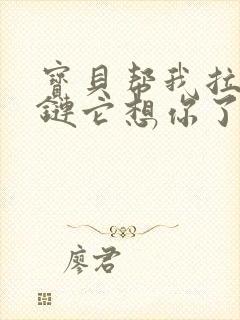 寶貝幫我拉
鏈它想你了
廖君